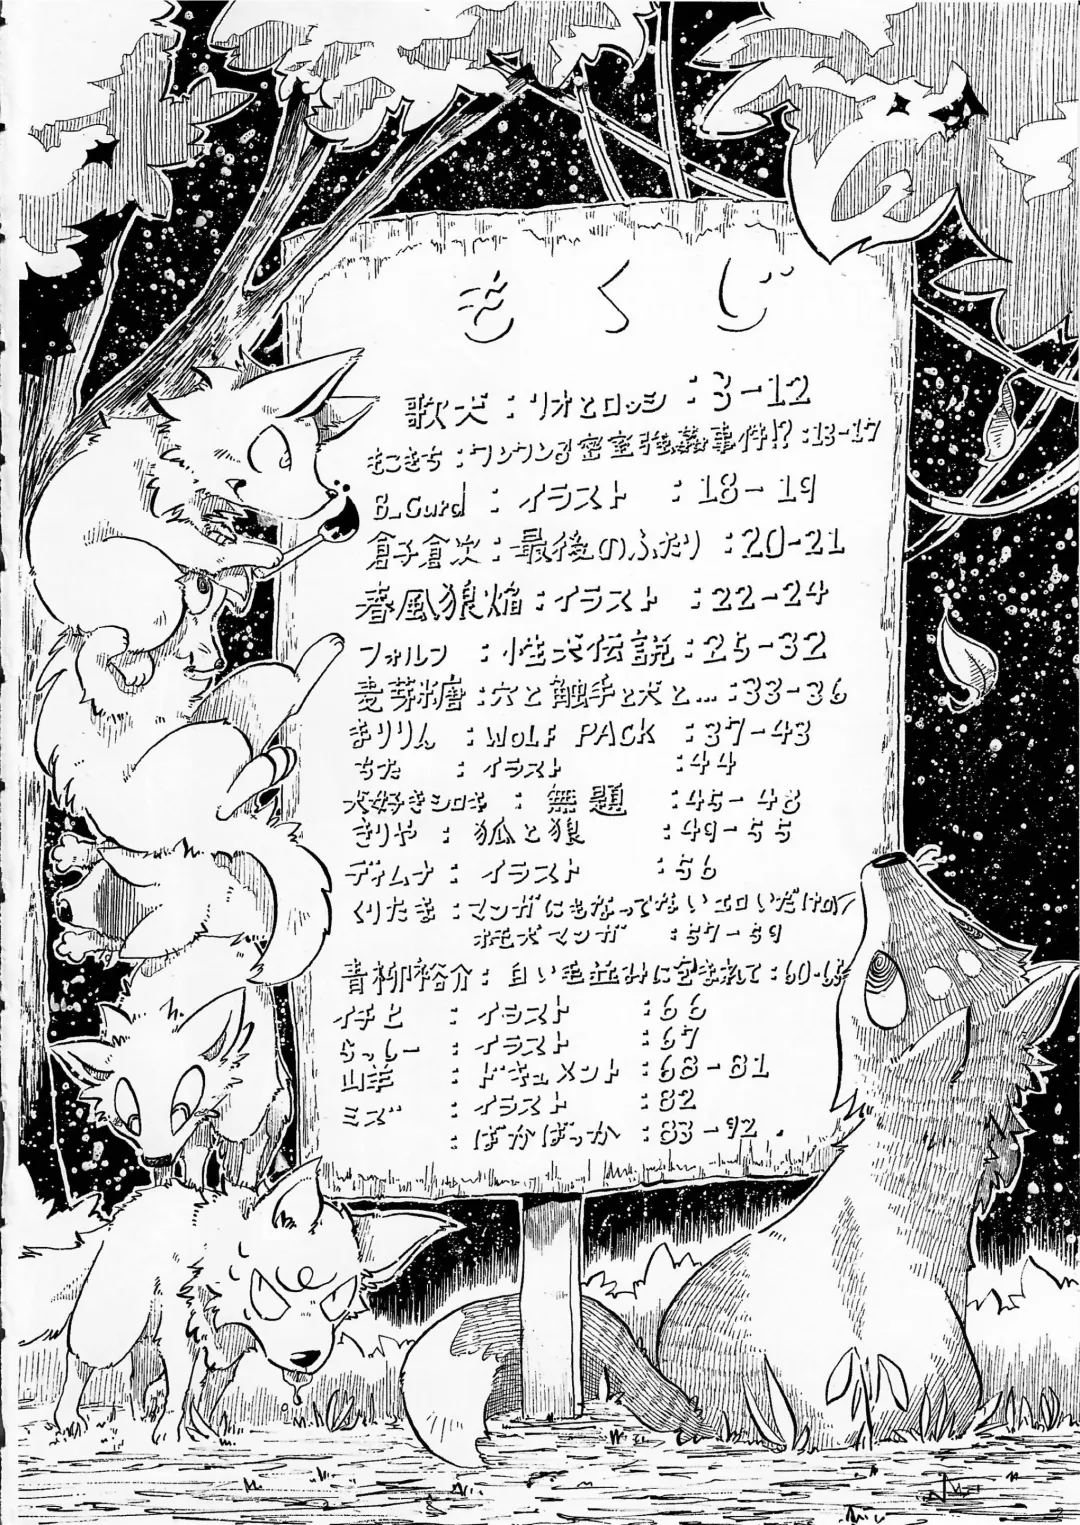 もくじ
歌犬：リオとロッシ：3-12
もこきち：ワンワン密室強姦事件!?：13-17
B_Gurd：イラスト：18-19
倉子倉次：最後のふたり：20-21
春風狼焔：イラスト：22-24
フォルフ：性犬伝説：25-32
麦芽糖：穴と触手と犬と…：33-36
まりりん：WOLF PACK：37-43
ちた：イラスト：44
犬好きシロキ：無題：45-48
きりや：狐と狼：49-55
ディムナ：イラスト：56
くりたま：マンガにもなってないエロいだけの
ホモ犬マンガ：57-59
青柳裕介：白い毛並みに包まれて：60-65
イチヒ：イラスト：66
らっしー：イラスト：67
山羊：ドキュメント：68-81
ミズ：イラスト：82
：ばかばっか：83-92.